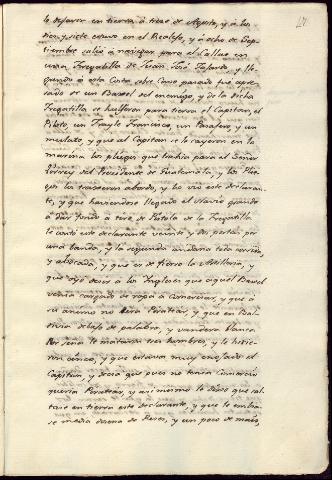 lo dejaron en tierra à tiro de
diez, y siete estuvo en el Realejo, y à ocho de Sep-
tiembre salió à navegar para el Callao en
una Fregatilla de Juan José y lle-
gando à esta Costa este Corso pasado fue apre-
sado de un Baxel del enemigo, y de la dicha
Fregatilla se huyeron para tierra el Capitan, el
Piloto, un Frayle Francisco, un Pasajero, y un
mulato, y que al Capitan se le cayeron en la
marina los pliegos que trahia para el Señor
Virrey del Presidente de Guatemala, y los
los trageron abordo, y lo vió este declaran-
te, y que haviendose llegado el Navio grande
à dar fondo à tiro de Pistola de la Fregatilla
le contó este declarante veinte y dos portas por
una banda, y la segunda andana toda corrida,
y abocada, y que es de fierro la Artilleria, y
que oyó decir à los Ingleses que aquel Baxel
venia cargado de ropa à Comerciar, y que à
su animo no era Piratear, y que en Bal-
divia debajo de palabra, y vandera blanca
les mataron tres hombres, y le hirie-
ron cinco, y que estava muy enojado el
Capitan, y decia que pues no tenia Comercio
queria Piratear, y asi mismo le dijo que sal-
tase en tierra este declarante, y que le embia-
se media docena de Reses, y un poco de maís,